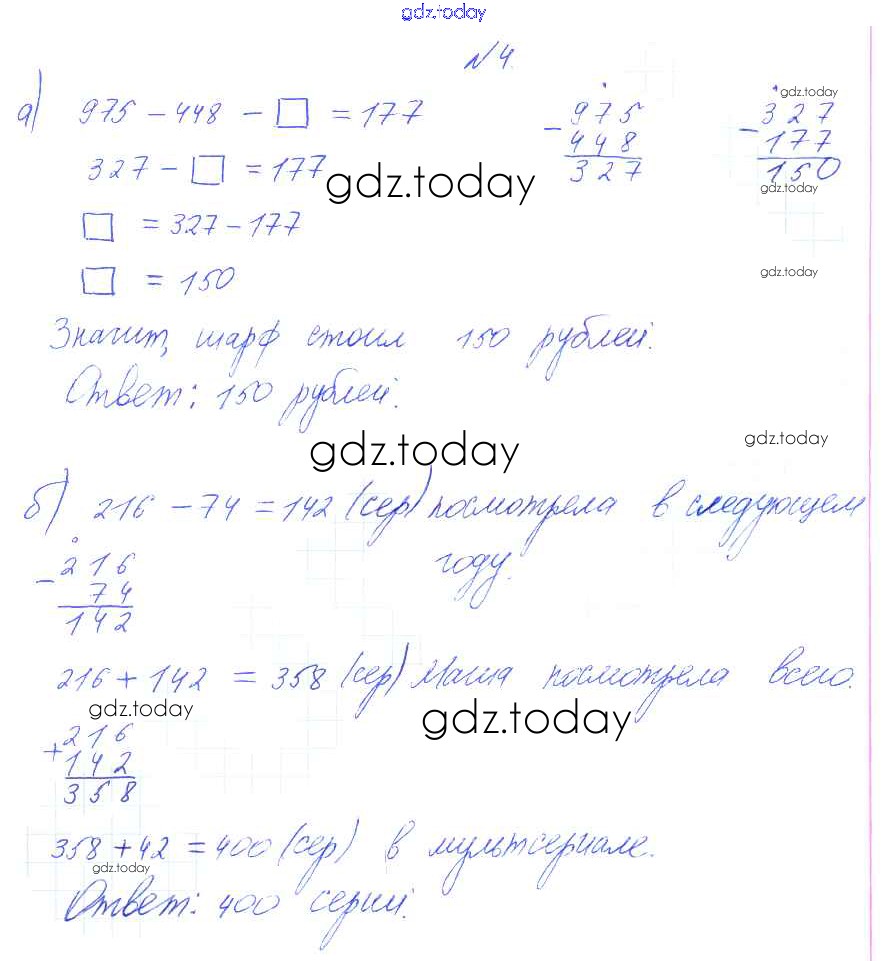 gdz.today
№ 4.
а) 975 − 448 − □ = 177
327 − □ = 177
□ = 327 − 177
□ = 150
− 975
448
327
gdz.today
− 327
177
150
gdz.today
gdz.today
gdz.today
Значит, шарф стоил 150 рублей.
Ответ: 150 рублей.
gdz.today
gdz.today
б) 216 − 74 = 142 (сер) посмотрела в следующем
году.
− 216
74
142
216 + 142 = 358 (сер) Маша посмотрела всего.
gdz.today
gdz.today
+ 216
142
358
358 + 42 = 400 (сер) в мультсериале.
gdz.today
Ответ: 400 серий.